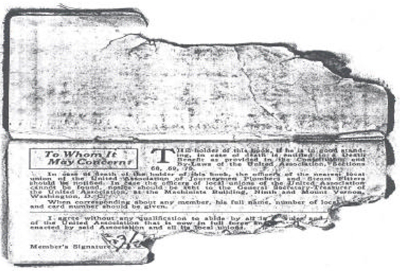 To Whom It
May Concern!
THE holder of this book, if he is in good stand-
ing, in case of death is entitled to a Death
Benefit as provided in the Constitution and
By-Laws of the United Association, Sections
68, 69, 70,
In case of death of the holder of this book, the officers of the nearest local
union of the United Association of Journeymen Plumbers and Steam Fitters
should be notified. In case officers of local unions of the United Association
cannot be found, notice should be sent to the General Secretary-Treasurer of
the United Association, at the Machinists Building, Ninth and Mount Vernon,
Washington, D.C.
When corresponding about any member, his full name, number of local
and card number should be given.
I agree without any qualification to abide by all and
of the United Association that is now in full force
enacted by said Association and all its local unions.
Member's Signature